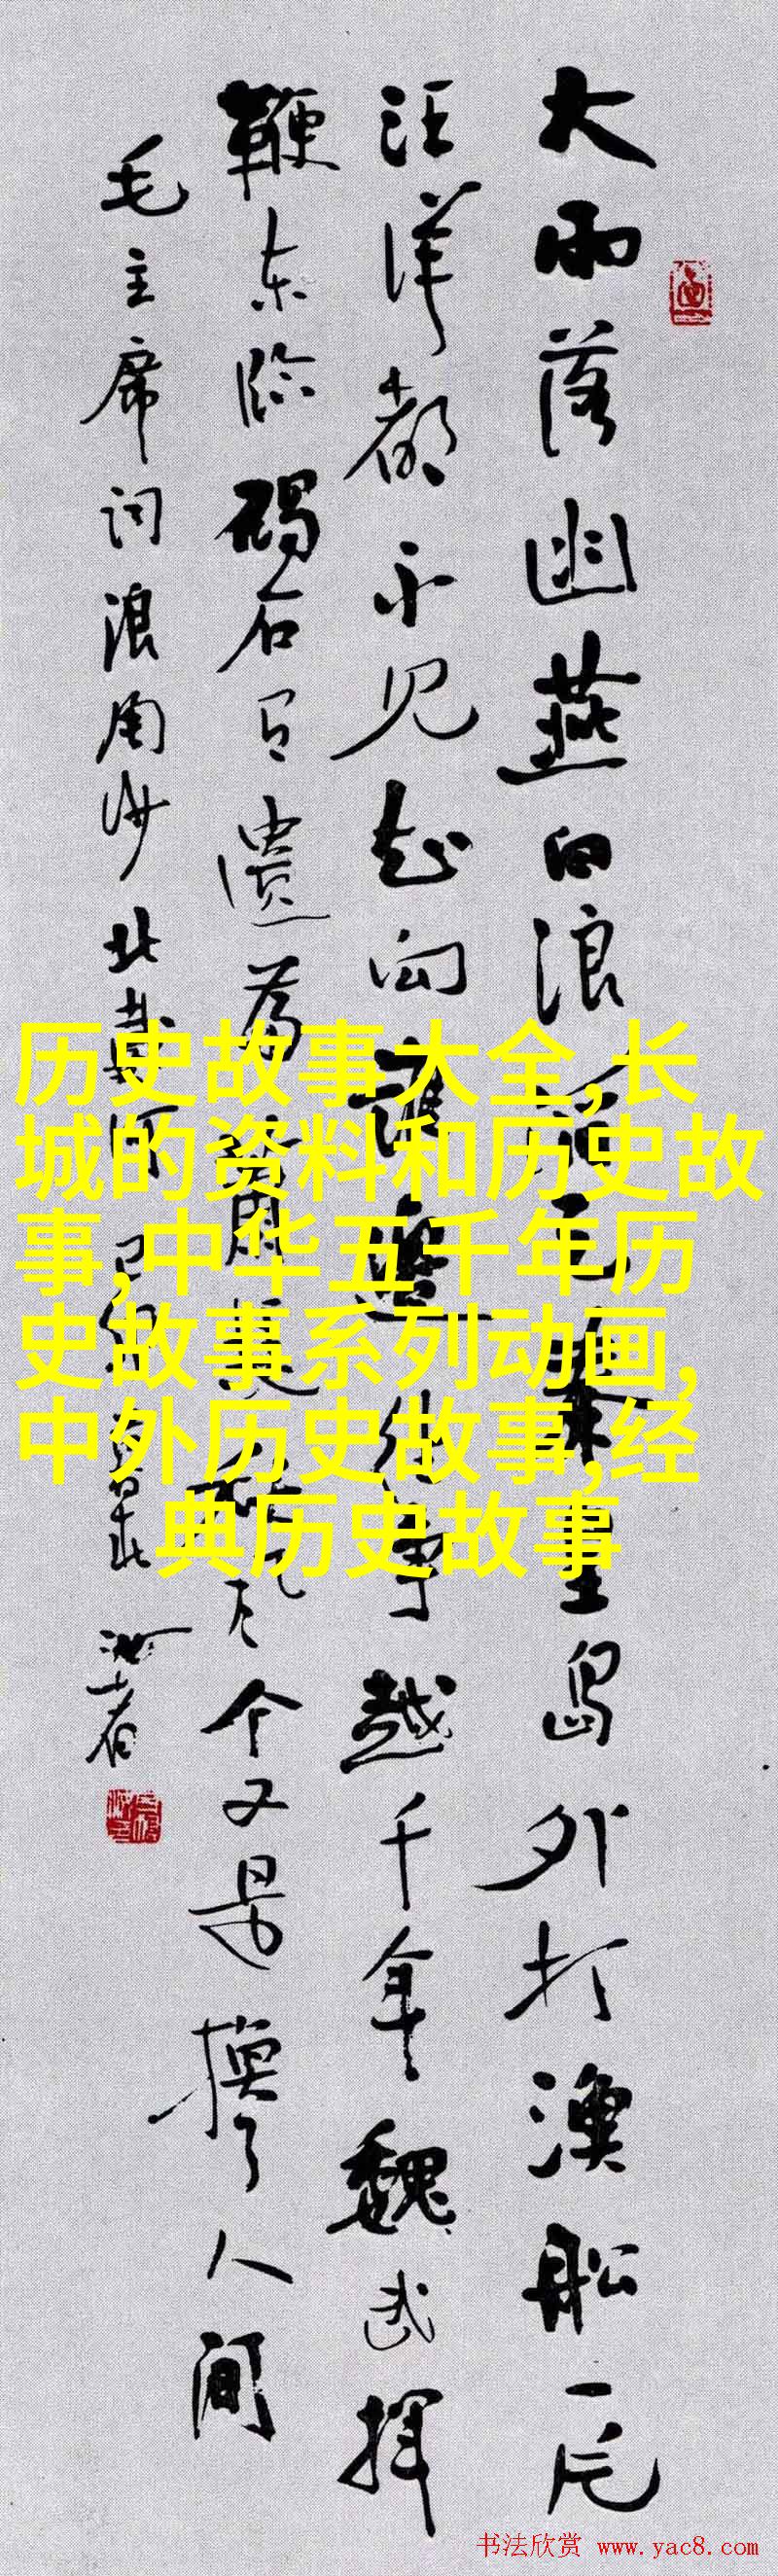 大雨落幽燕白浪滔天秦皇島外打漁船一片
汪洋都不见知向誰邊往事越千年魏武揮
鞭东临碣石有遗篇萧瑟秋风今又是換了人間
毛主席词浪淘沙北戴河
历史故事大全,长
城的资料和历史故
事,中华五千年历
史故事系列动画,
中外历史故事,经
典历史故事
书法欣赏 www.yac8.com